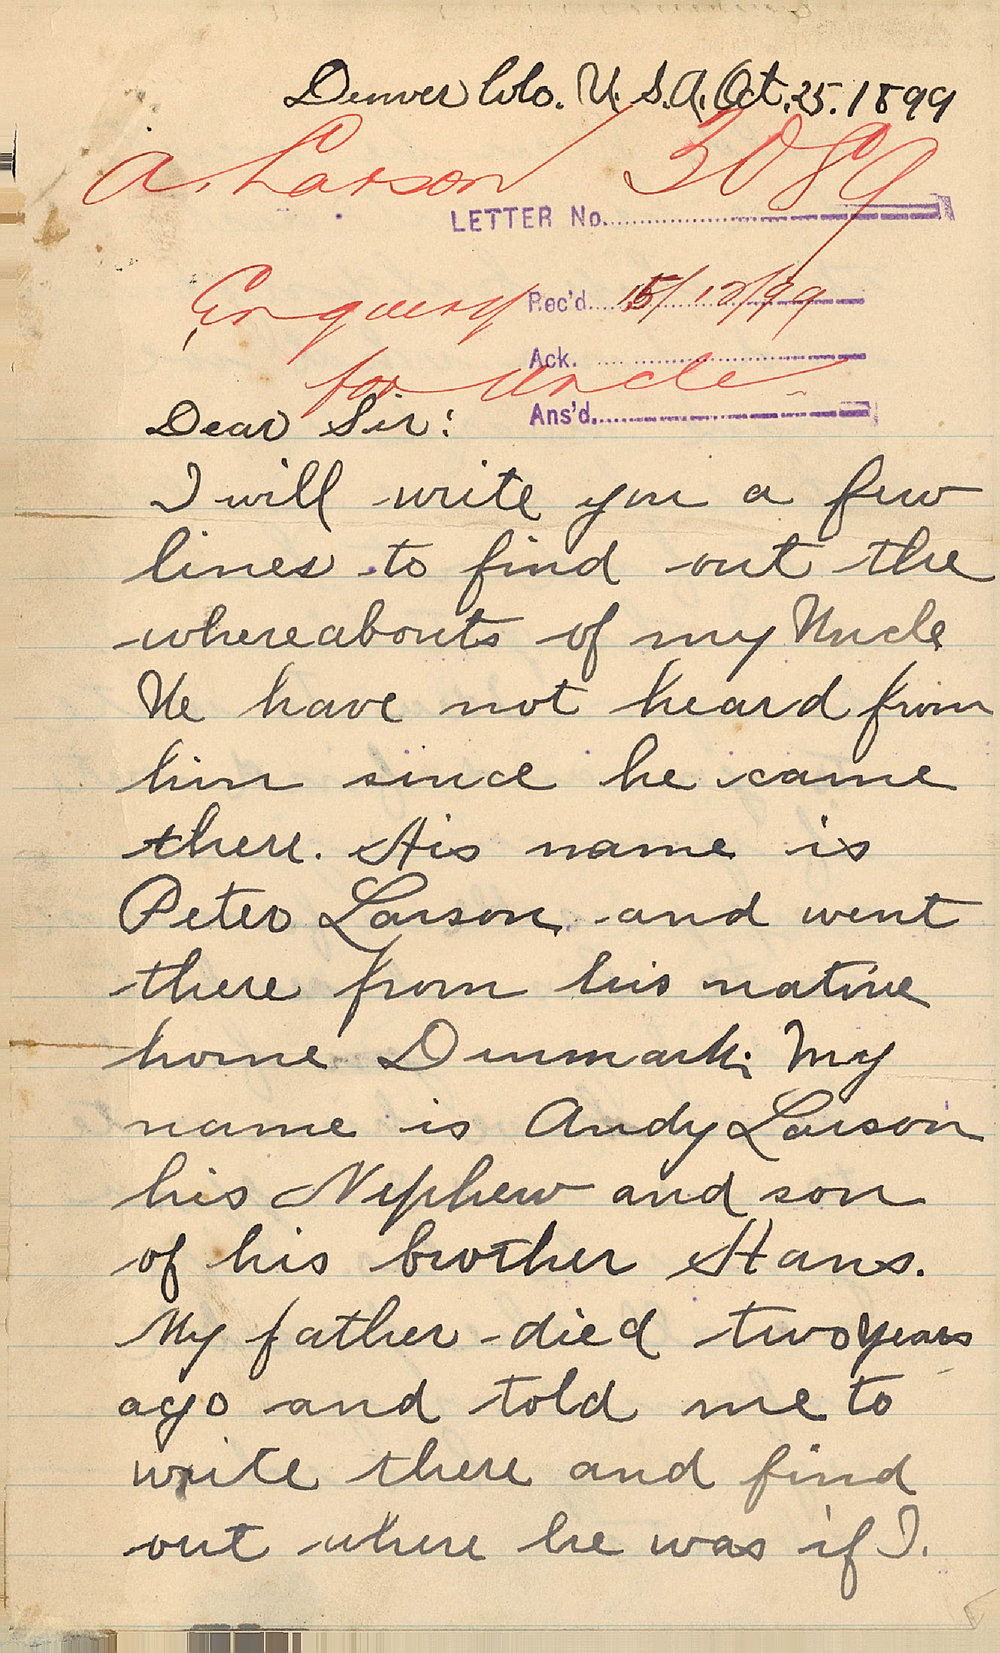 Denver Colo. U.S.A. Oct. 25. 1899
A. Larson 3089
LETTER No.
Enquery Rec'd. 15/12/99
Ack.
for Uncle
Ans'd.
Dear Sir:
I will write you a few
lines to find out the
whereabouts of my Uncle
We have not heard from
him since he came
there. His name is
Peter Larson, and went
there from his native
home Denmark; My
name is Andy Larson
his Nephew and son
of his brother Hans.
My father died two years
ago and told me to
write there and find
out where he was if I.